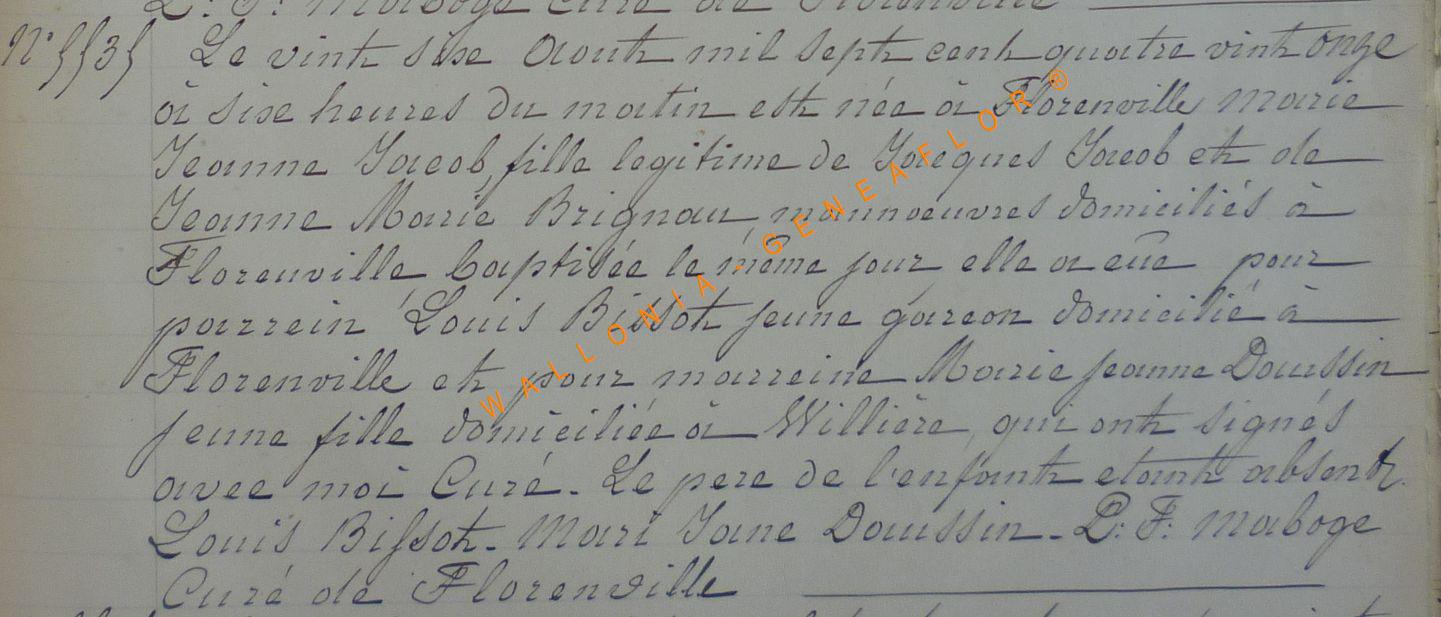 L: F: Maboge Curé de Florenville
N° 5535 Le vint sixe Aout mil sept cent quatre vint onze
à sixe heures du matin est née à Florenville Marie
Jeanne Jacob, fille legitime de Jacques Jacob et de
Jeanne Marie Brignau, mannoeuvres domiciliés à
Florenville baptisée le même jour elle a eûe pour
parrein Louis Bissot jeune garcon domicilié à
Florenville et pour marreine Marie Jeanne Daussin
jeune fille domiciliée à Willière, qui ont signés
avec moi Curé. Le pere de l'enfant etant absent.
Louis Bissot. Mari Jane Daussin. L: F: Maboge
Curé de Florenville
WALLONIA - GENEAFLOR®